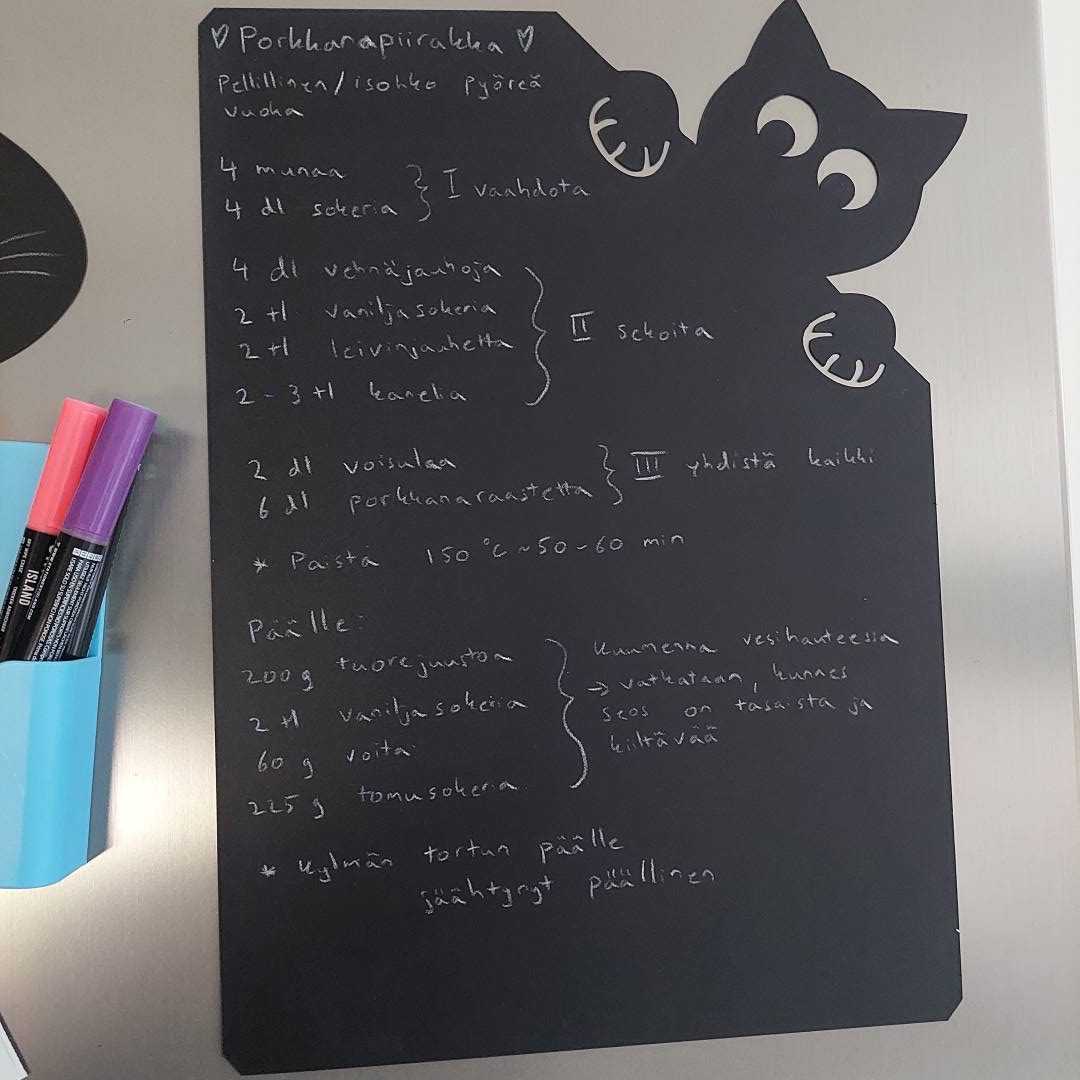 ♡ Porkkanapiirakka ♡
Pellillinen/isohko pyöreä
vuoka
4 munaa
4 dl sokeria } I vaahdota
4 dl vehnäjauhoja
2 tl vaniljasokeria
2 tl leivinjauhetta } II sekoita
2-3 tl kanelia
2 dl voisulaa
6 dl porkkanaraastetta } III yhdistä kaikki
* Paista 150 °C ~50-60 min
Päälle:
200 g tuorejuustoa
2 tl vaniljasokeria
60 g voita
225 g tomusokeria
} Kuumenna vesihauteessa
→ vatkataan, kunnes
seos on tasaista ja
kiiltävää
* Kylmän tortun päälle
jäähtynyt päällinen
ISLAND